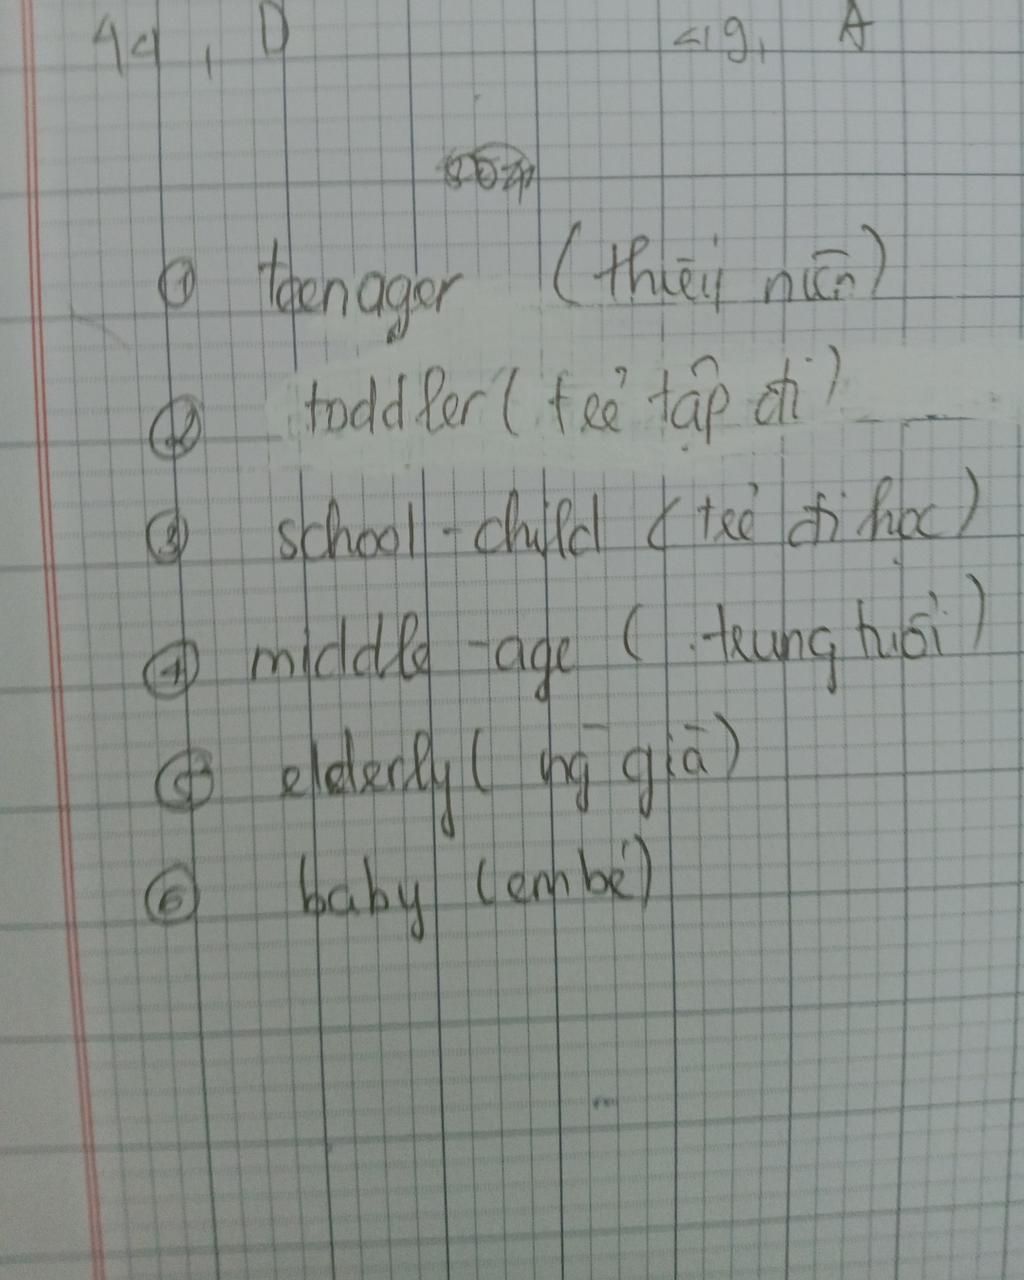 49, D 19, A
① teenager (thiếu niên)
② toddler (trẻ tập đi)
③ school-child (trẻ đi học)
④ middle-age (trung tuổi)
⑤ elderly (ng già)
⑥ baby (em bé)